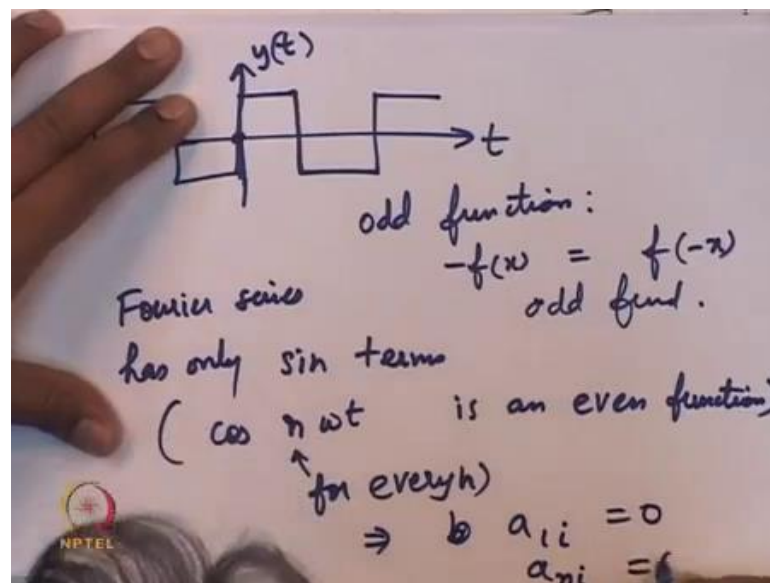 y(t)
t
odd function:
-f(x) = f(-x)
odd fund.
Fourier series
has only sin terms
( cos n ωt is an even function)
↑
for every n)
⇒ b a₁ᵢ = 0
aₙᵢ =
NPTEL